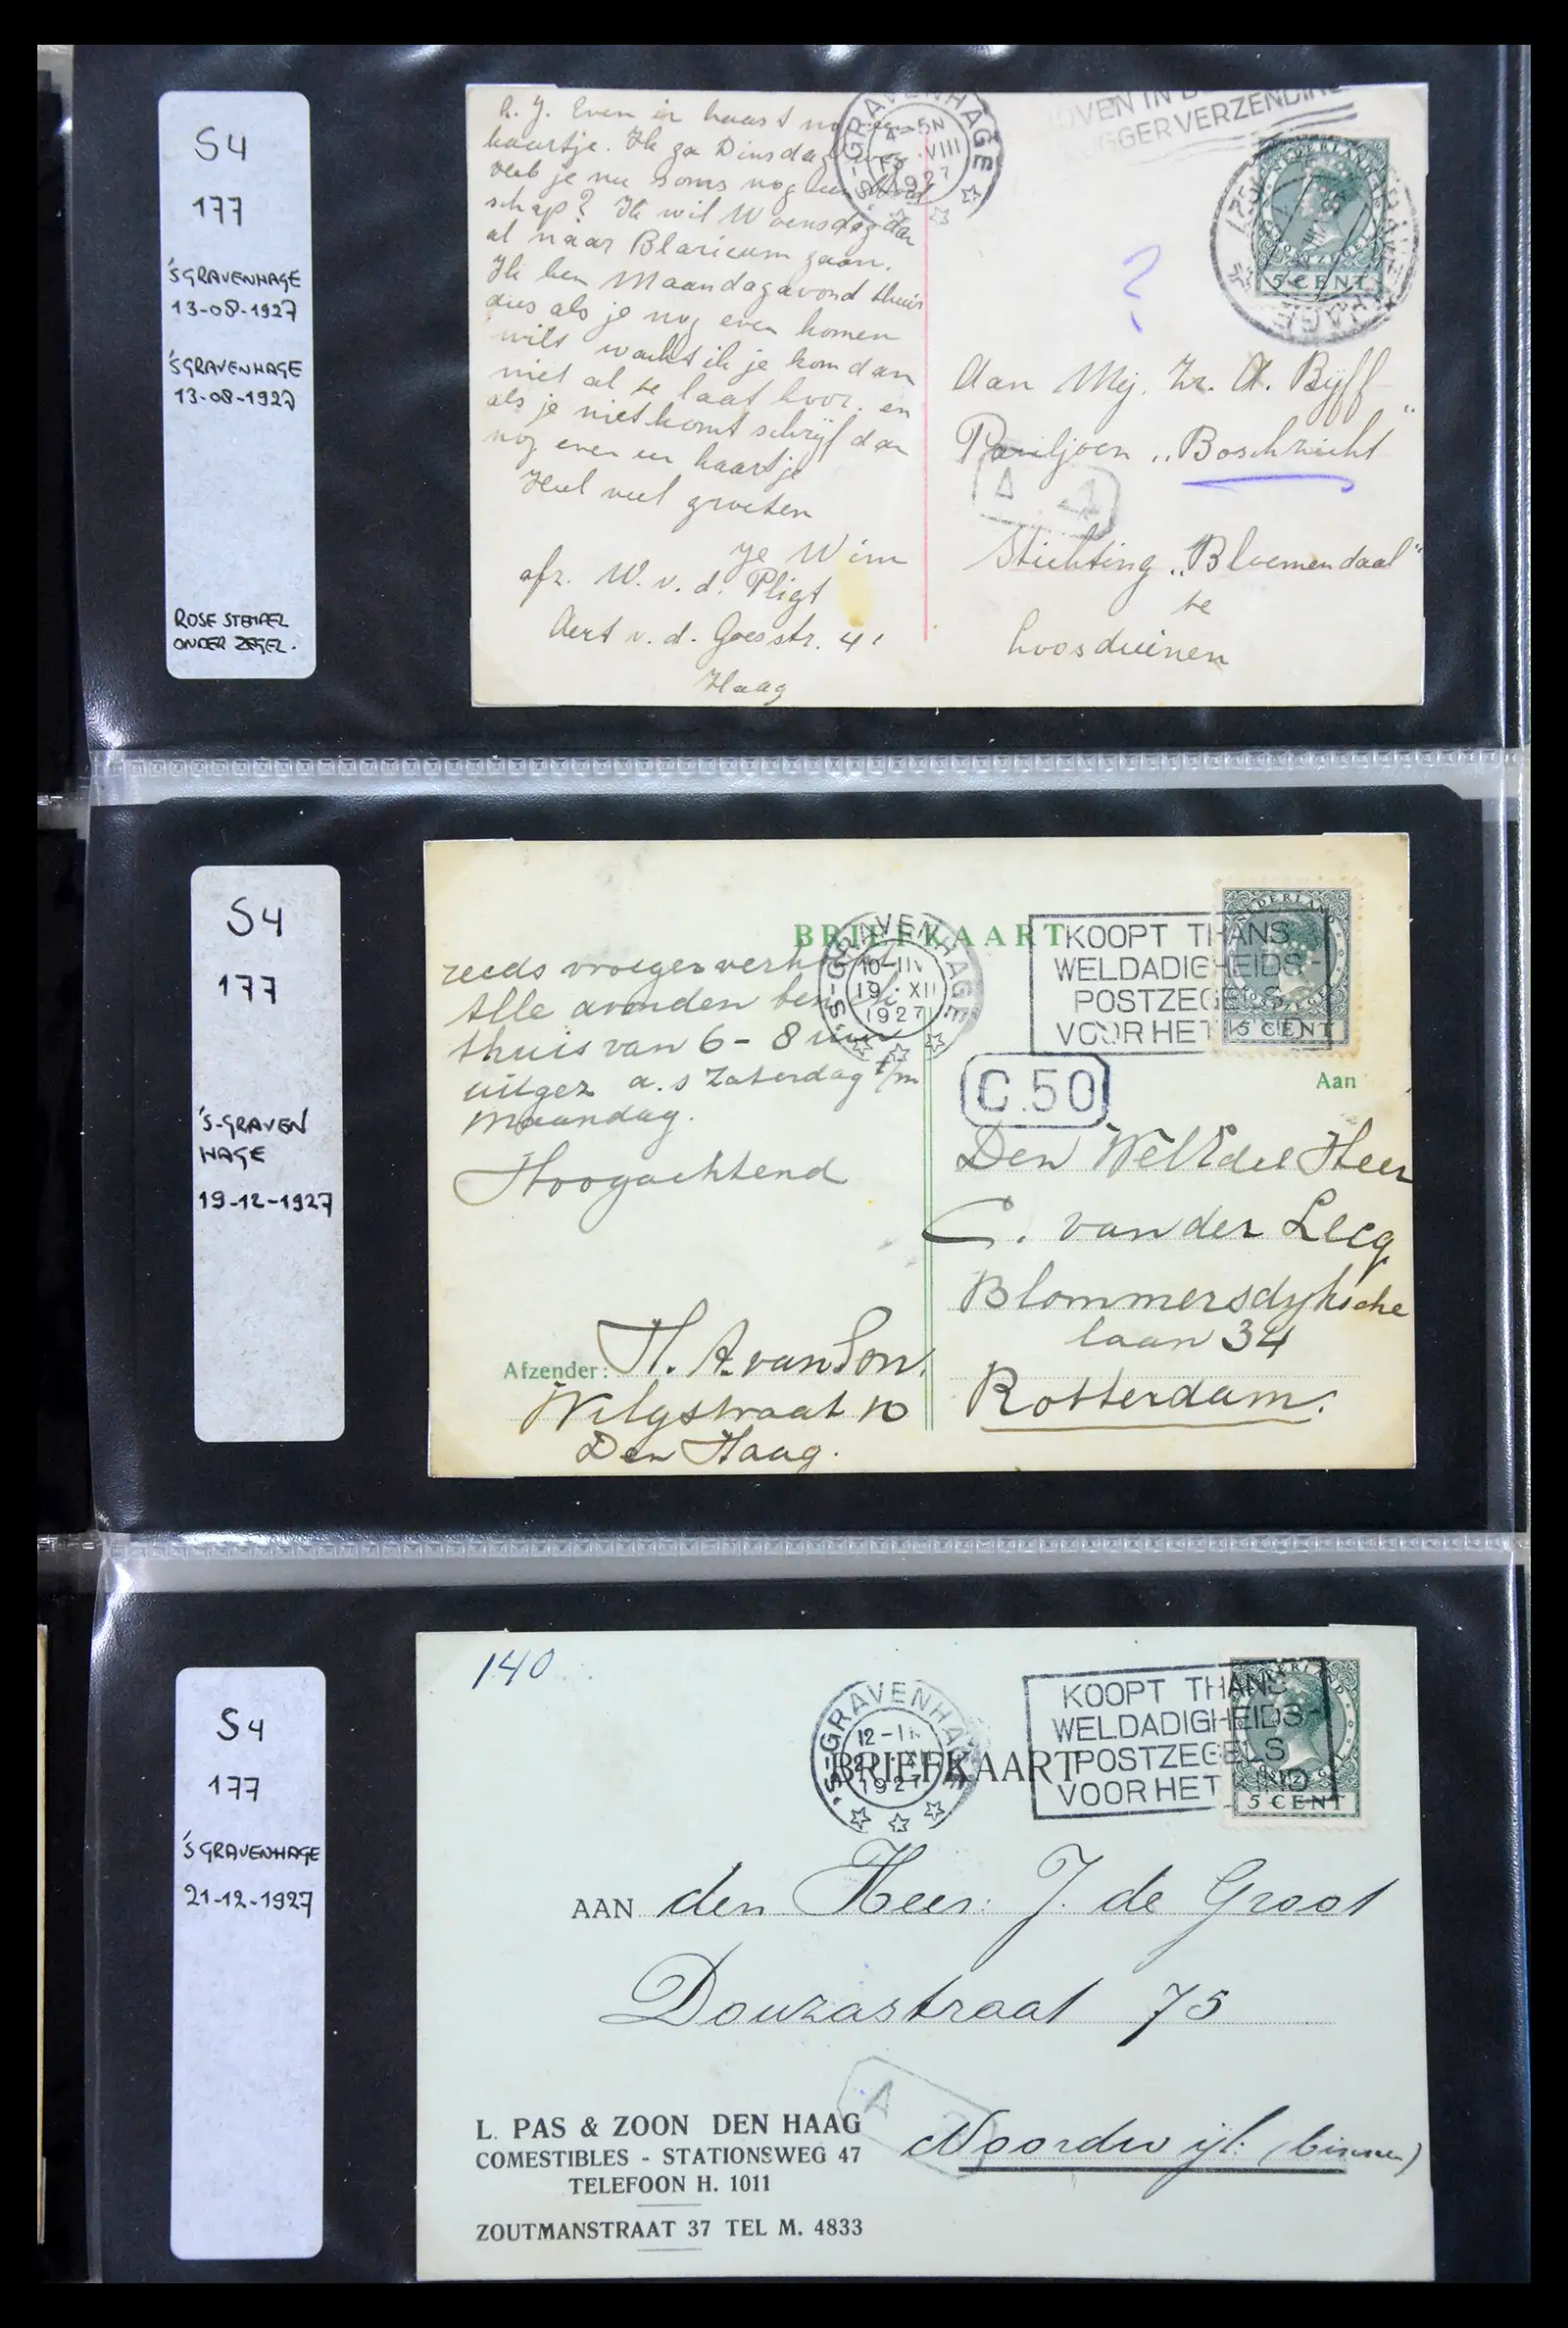 S4
177
'SGRAVENHAGE
13-08-1927
'SGRAVENHAGE
13-08-1927
ROSE STEMPEL
ONDER ZEGEL.
L. J. Even in haast nog een
kaartje. Ik ga Dinsdag weg
heb je nu soms nog een bood
schap? Ik wil Woensdag dan
al naar Blaricum gaan.
Ik ben Maandagavond thuis
dus als je nog even komen
wilt wacht ik je kom dan
niet al te laat hoor. en
als je niet komt schrijf dan
nog even een kaartje
Heel veel groeten
je Wim
afz. W. v. d. Pligt
Aert v. d. Goesstr. 41
Haag
'S-GRAVENHAGE
4-5N
VIII
1927
OVEN IN
UGGER VERZENDING
NEDERLAND
5 CENT
?
Aan Mej. Zr. A. Bijff
Paviljoen „Boschzicht"
A
Stichting „Bloemendaal"
te
Loosduinen
S4
177
'S-GRAVEN
HAGE
19-12-1927
BRIEFKAART
'S-GRAVENHAGE
19 XII
1927
KOOPT THANS
WELDADIGHEIDS-
POSTZEGELS
VOOR HET
NEDERLAND
5 CENT
C.50
reeds vroeger
Alle avonden ben ik
thuis van 6 - 8 uur
uitgez a.s Zaterdag t/m
Maandag.
Hoogachtend
Afzender: H. A. van Son.
Wilgstraat 10
Den Haag.
Aan
Den WelEdel Heer
C. van der Lecq
Blommersdyksche
laan 34
Rotterdam.
S4
177
'SGRAVENHAGE
21-12-1927
140
'S-GRAVENHAGE
1927
BRIEFKAART
KOOPT THANS
WELDADIGHEIDS-
POSTZEGELS
VOOR HET KIND
5 CENT
AAN den Heer: J. de Groot
Douzastraat 75
A
Noordwijk (binnen)
L. PAS & ZOON DEN HAAG
COMESTIBLES - STATIONSWEG 47
TELEFOON H. 1011
ZOUTMANSTRAAT 37 TEL M. 4833